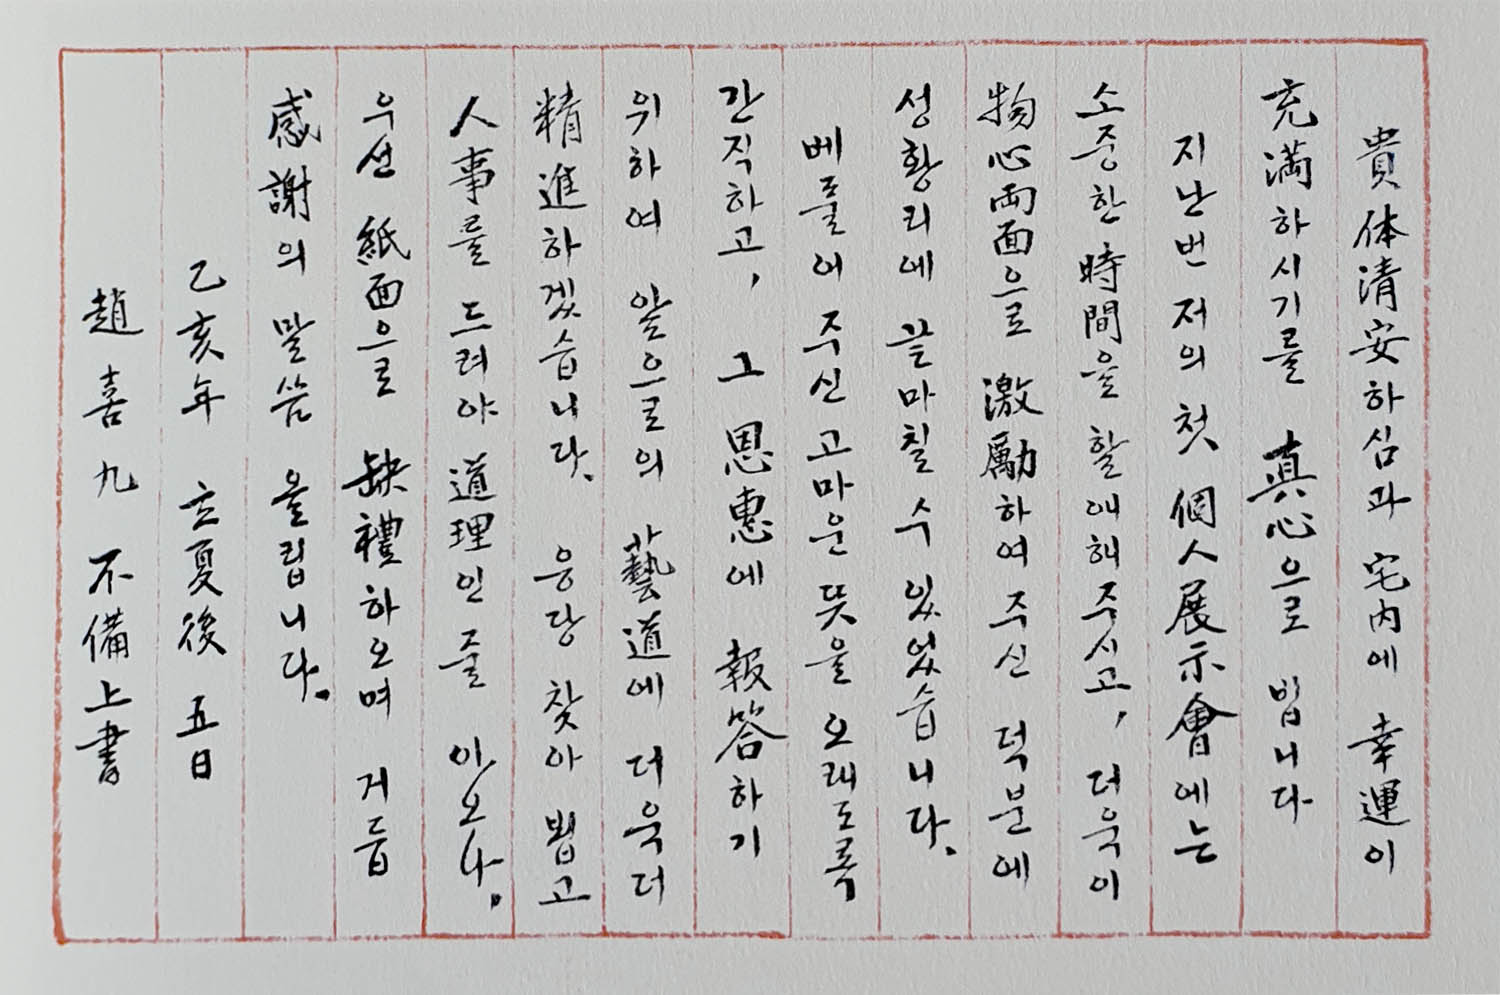 貴体清安하심과 宅内에 幸運이
充満하시기를 真心으로 빕니다
지난번 저의 첫 個人展示會에는
소중한 時間을 할애해주시고, 더욱이
物心両面으로 激勵하여 주신 덕분에
성황리에 끝마칠 수 있었습니다.
베풀어 주신 고마운 뜻을 오래도록
간직하고, 그 恩惠에 報答하기
위하여 앞으로의 藝道에 더욱더
精進하겠습니다. 응당 찾아 뵙고
人事를 드려야 道理인 줄 아오나,
우선 紙面으로 缺禮하오며 거듭
感謝의 말씀 올립니다.
乙亥年 立夏後 五日
趙喜九 不備上書